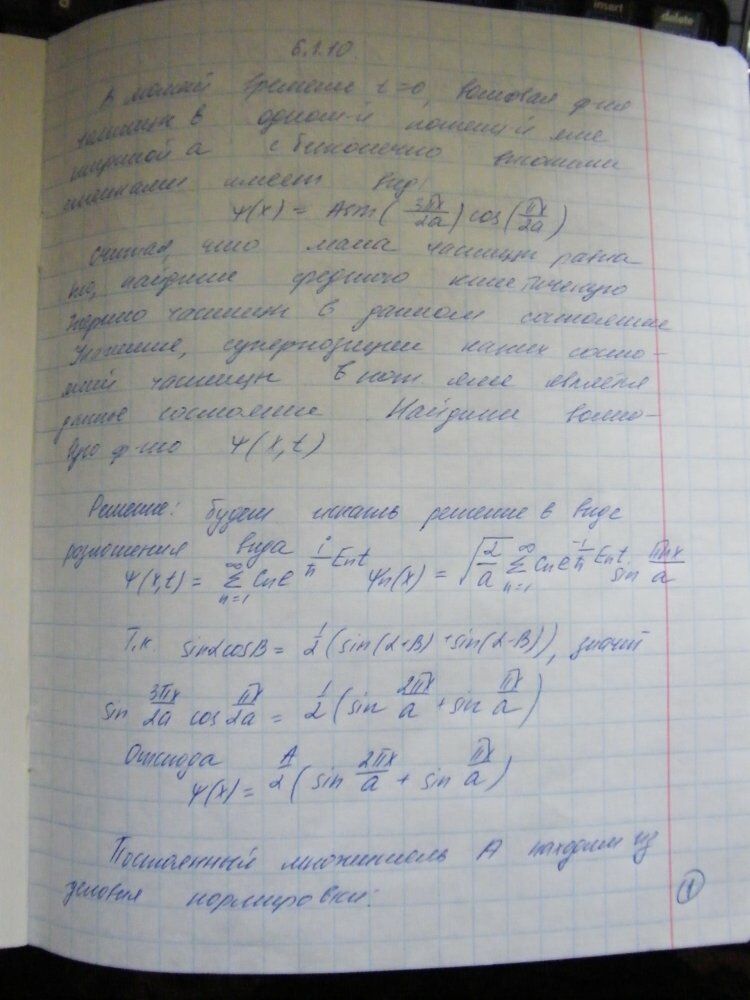 insert
delete
6.1.10.
В момент времени t=0, волновая ф-ия
частицы в одном-й потенц-й яме
шириной a с бесконечно высокими
стенками имеет вид:
Ψ(x) = A sin(3πx/2a) cos(πx/2a)
Считая, что масса частицы равна
m₀, найдите среднюю кинетическую
энергию частицы в данном состоянии
Укажите, суперпозицией каких состо-
яний частицы в пот яме является
данное состояние Найдите волно-
вую ф-ию Ψ(x,t)
Решение: будем искать решение в виде
разложения вида
Ψ(x,t) = ∑_{n=1}^{∞} Cn e^{i/ħ Ent} Ψn(x) = √(2/a) ∑_{n=1}^{∞} Cn e^{-i/ħ Ent} sin πnx/a
Т.к. sinαcosβ = 1/2 (sin(α+β)+sin(α-β)), значит
sin 3πx/2a cos πx/2a = 1/2 (sin 2πx/a + sin πx/a)
Отсюда
Ψ(x) = A/2 (sin 2πx/a + sin πx/a)
Постоянный множитель A находим из
условия нормировки:
1